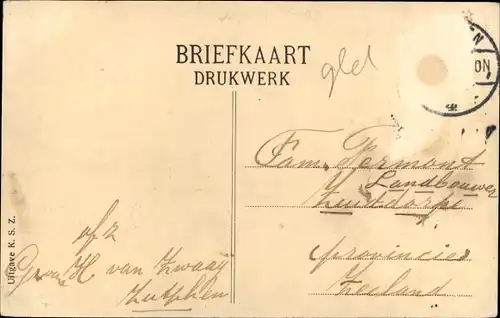 BRIEFKAART
DRUKWERK
gld
N
ON
Fam. Vermont
Landbouwer
Zuiddorpe
provincie
Zeeland
afz
H van Zwaaij
Zutphen
Uitgave K. S. Z.